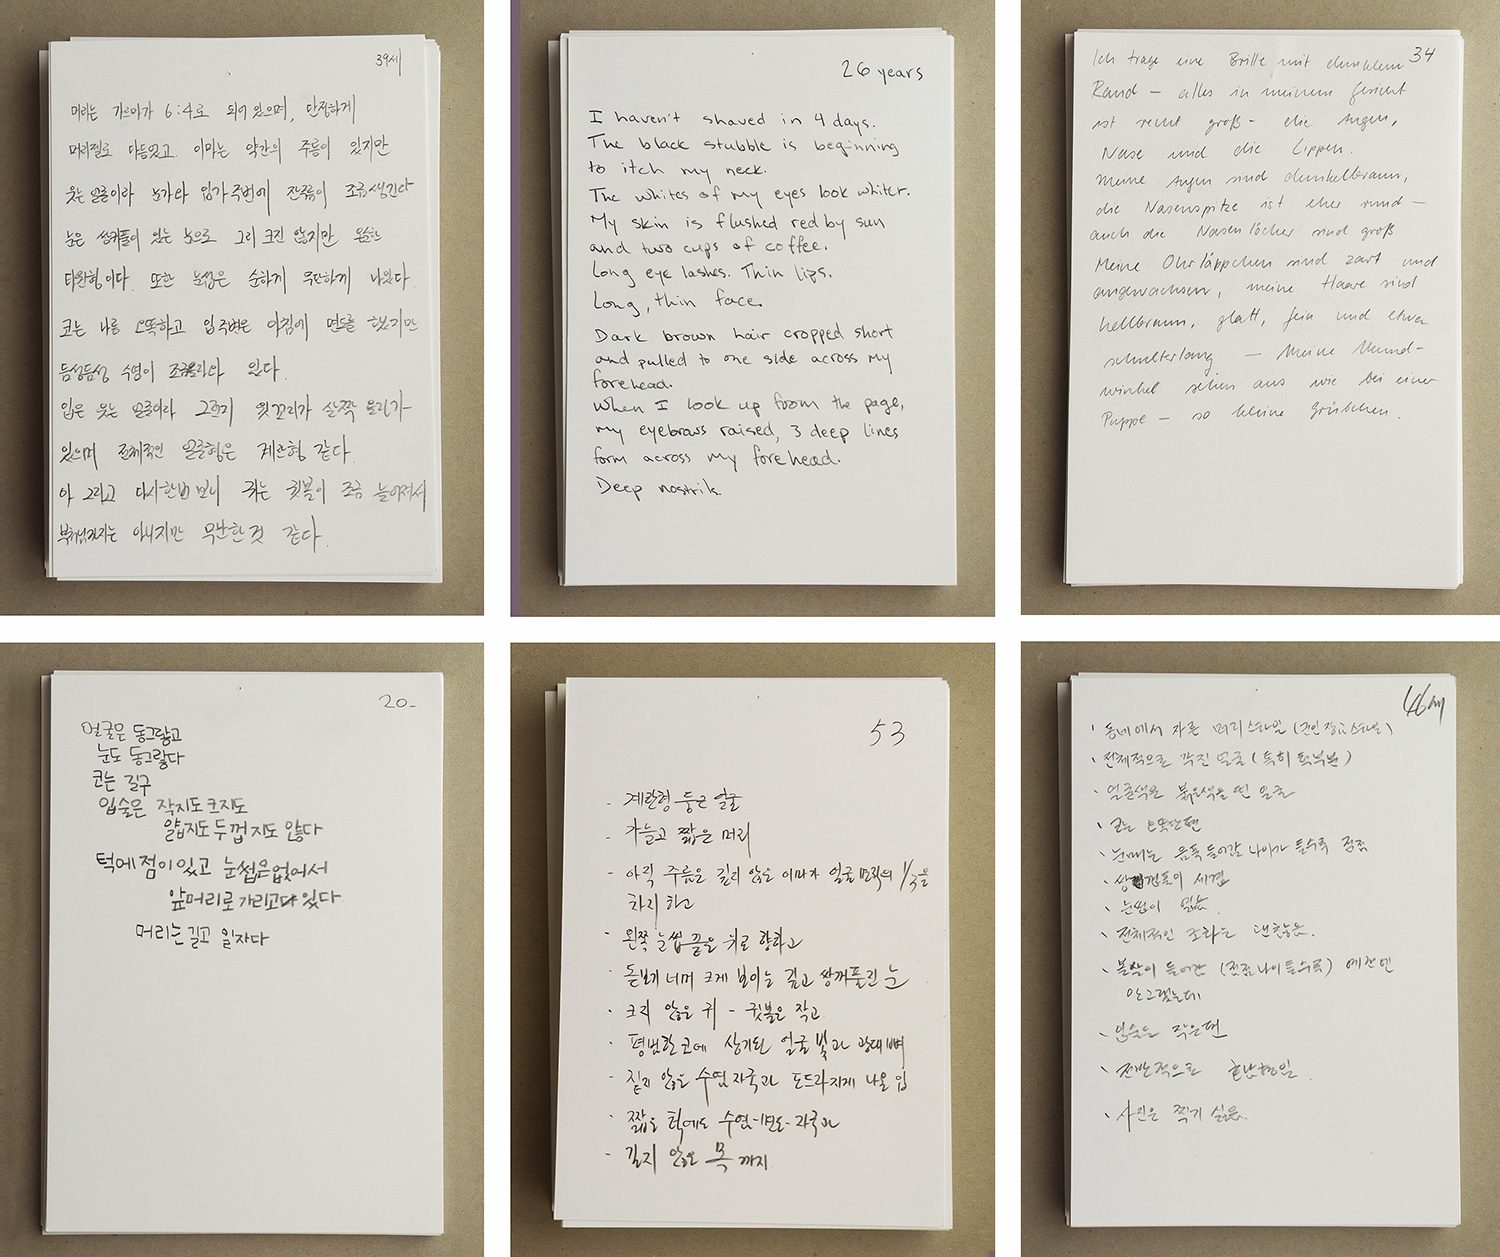 39세
머리는 가르마가 6:4로 되어 있으며, 단정하게
머리질로 다듬었고. 이마는 약간의 주름이 있지만
웃는 얼굴이라 눈가나 입가 주변에 잔주름이 조금 생긴다
눈은 쌍커풀이 있는 눈으로 그리 크진 않지만
타원형이다. 또한 눈썹은 순하게 무난하게 나왔다.
코는 나름 오똑하고 입주변은 아침에 면도를 했지만
듬성듬성 수염이 조금 있다.
입은 웃는 얼굴이라 그런지 윗꼬리가 살짝 올라가
있으며 전체적인 얼굴형은 계란형 같다.
아 그리고 다시한번 보니 귀는 귓볼이 조금 늘어져서
아니지만 무난한 것 같다.
26 years
I haven't shaved in 4 days.
The black stubble is beginning
to itch my neck.
The whites of my eyes look whiter.
My skin is flushed red by sun
and two cups of coffee.
Long eye lashes. Thin lips.
Long, thin face.
Dark brown hair cropped short
and pulled to one side across my
forehead.
When I look up from the page,
my eyebrows raised, 3 deep lines
form across my forehead.
Deep nostrils.
34
Ich trage eine Brille mit dunklem
Rand – alles in meinem Gesicht
ist recht groß – die Augen,
Nase und die Lippen.
Meine Augen sind dunkelbraun,
die Nasenspitze ist eher rund –
auch die Nasenlöcher sind groß
Meine Ohrläppchen sind zart und
angewachsen, meine Haare sind
hellbraun, glatt, fein und etwa
schulterlang – Meine Mund-
winkel sehen aus wie bei einer
Puppe – so kleine Grübchen.
20-
얼굴은 동그랗고
눈도 동그랗다
코는 길구
입술은 작지도 크지도
얇지도 두껍지도 않다
턱에 점이 있고 눈썹은 없어서
앞머리로 가리고다 있다
머리는 길고 일자다
53
- 계란형 둥근 얼굴
- 가늘고 짧은 머리
- 아직 주름은 깊지 않은 이마가 얼굴 면적의 1/3을
차지하고
- 왼쪽 눈썹 끝은 위로 향하고
- 돋보기 너머 크게 보이는 깊고 쌍꺼풀진 눈
- 크지 않은 귀 - 귓볼은 작고
- 평범한 코에 상기된 얼굴빛과 광대뼈
- 짙지 않은 수염자국과 도드라지게 나온 입
- 짧은 턱에도 수염-면도-자국과
- 길지 않은 목 까지
46세
· 동네에서 자른 머리스타일 (군인 장교 스타일)
· 전체적으로 각진 얼굴 (특히 턱부분)
· 얼굴색은 붉은색을 띤 얼굴
· 코는 오똑한편
· 눈매는 움푹 들어감 나이가 들수록 점점
· 쌍꺼풀이 세겹
· 눈썹이 옅음.
· 전체적인 조화는 괜찮음.
· 볼살이 들어감 (점점 나이들수록) 예전엔
안그랬는데
· 입술은 작은편
· 전반적으로 호남형임.
· 사진은 찍기 싫음.